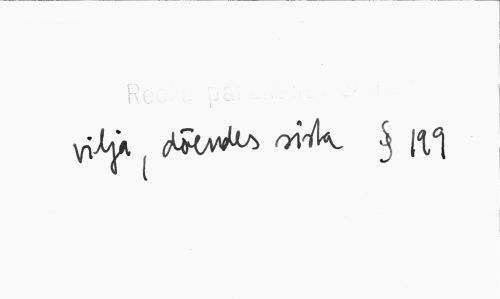 vilja, döendes sista § 199